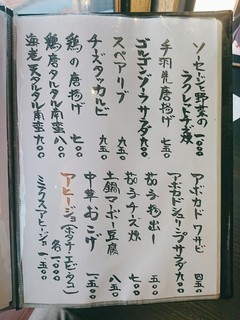 ソーセージと野菜の
ラクレットチーズ焼 一,〇〇〇
手羽先唐揚げ 七五〇
ゴルゴンゾーラサラダ 九〇〇
スペアリブ 九五〇
チーズタッカルビ 九五〇
鶏の唐揚げ 七〇〇
鶏唐タルタル南蛮 八〇〇
海老天タルタル南蛮 九〇〇
アボカドワサビ 四五〇
アボカドシュリンプサラダ 九〇〇
茄子朴出し 五〇〇
茄子チーズ焼 七〇〇
土鍋マーボー豆腐 八五〇
中華おこげ 一,五〇〇
アヒージョ(ホタテ・エビ・タコ) 各一,〇〇〇
ミックスアヒージョ 一,五〇〇